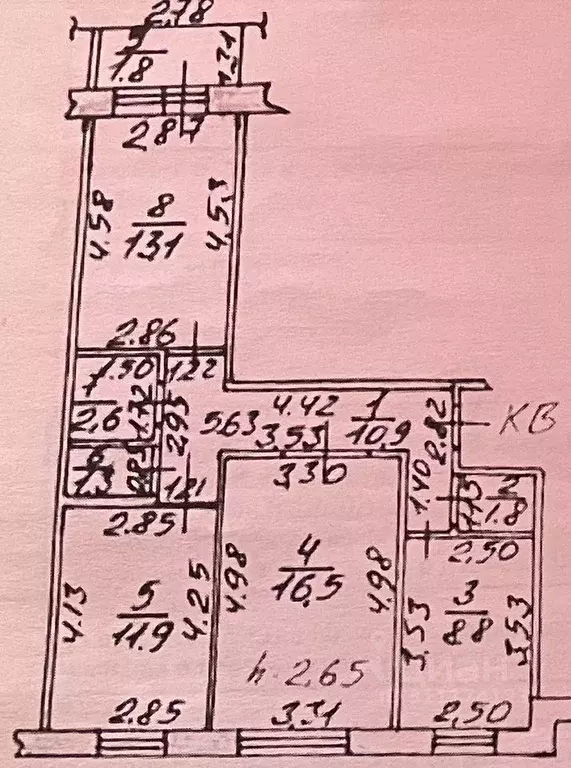 2.78
5
1.8
1.31
2.87
4.58
8
13.1
4.53
2.86
1.50
1.22
7
2.6
1.72
2.93
5.63
4.42
1
10.9
2.82
КВ
3.53
3.30
6
1.3
0.85
1.21
1.40
1.15
2
1.8
2.85
2.50
4.13
5
11.9
4.25
4.98
4
16.5
4.98
3.53
3
8.8
3.53
h. 2.65
2.85
3.31
2.50